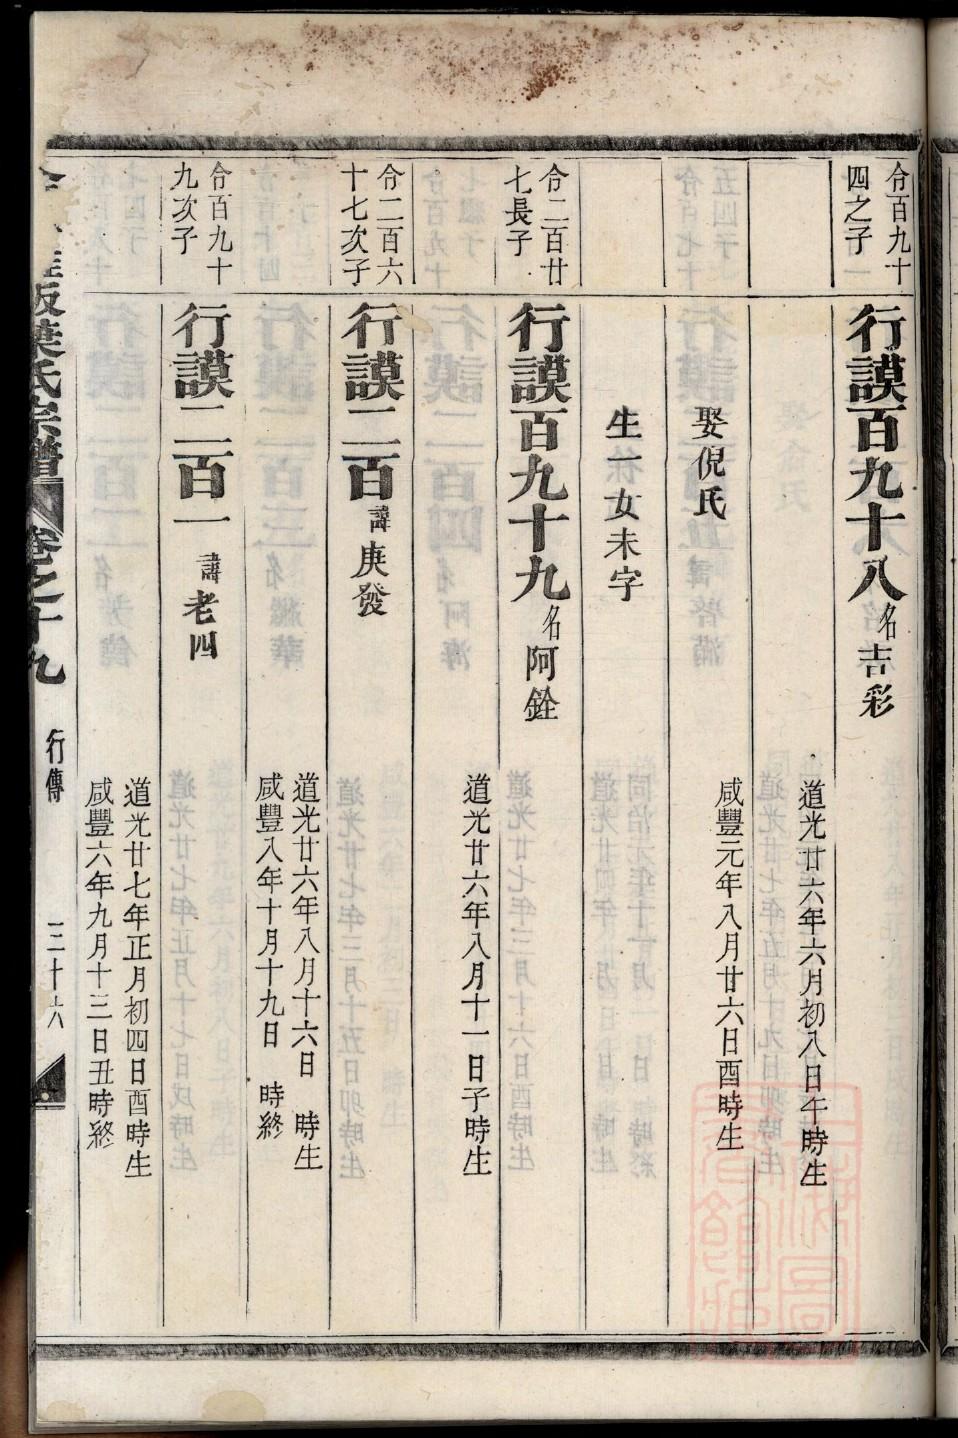 㑹百九十
四之子
行謨百九十八名吉彩
道光廿六年六月初八日午時生
娶倪氏
咸豐元年八月廿六日酉時生
生一女未字
㑹二百廿
七長子
行謨百九十九名阿銓
道光廿六年八月十一日子時生
㑹二百六
十七次子
行謨二百諱庚發
道光廿六年八月十六日 時生
咸豐八年十月十九日 時終
㑹百九十
九次子
行謨二百一諱老四
道光廿七年正月初四日酉時生
咸豐六年九月十三日丑時終
葉氏宗譜 卷之十九 行傳 三十六